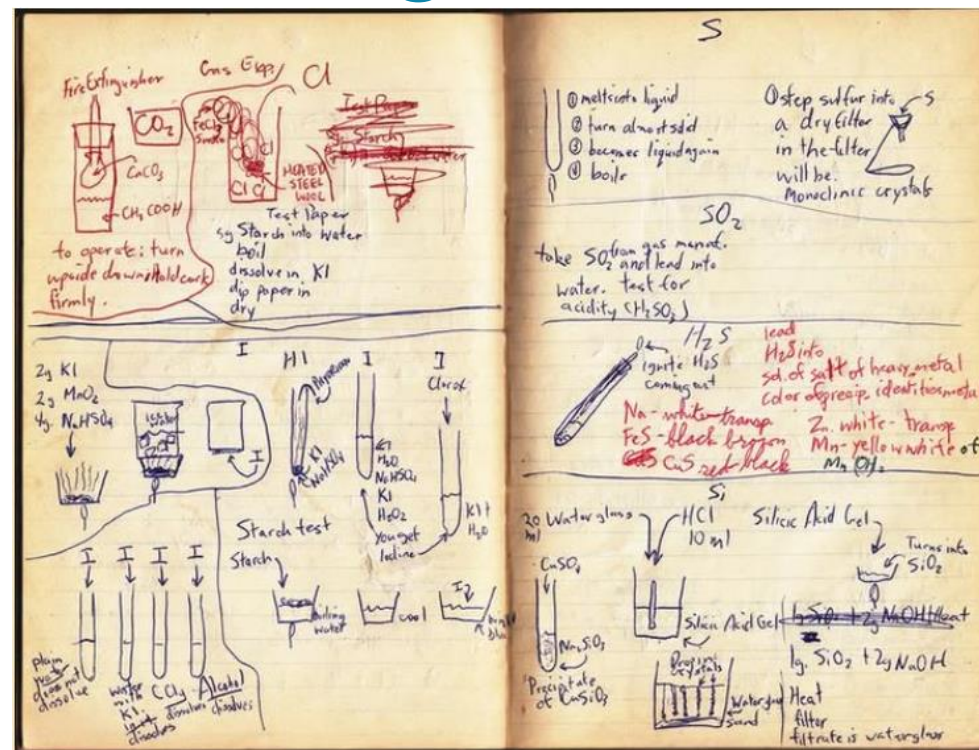 Fire Extinguisher
CO2
CaCO3
CH3COOH
to operate: turn
upside down & hold cork
firmly.
Gas Exp.
Cl
FeCl3
Smoke
Cl
Cl
Cl Cl
HEATED
STEEL
WOOL
Test Paper
Starch
water
Test Paper
5g Starch into water
boil
dissolve in KI
dip paper in
dry
I
2g KI
2g MnO2
4g NaHSO4
I
HI
KI
NaHSO4
I
H2O
NaHSO4
KI
H2O2
you get
Iodine
I
Clorox
KI +
H2O
Starch test
Starch
boiling
water
cool
I2
I
I
I
I
plain
water
does not
dissolve
water
KI
dissolves
CCl4
dissolves
Alcohol
dissolves
S
① melts into liquid
② turn almost solid
③ becomes liquid again
④ boils
① step sulfur into
a dry filter
in the filter
will be
Monoclinic crystals
S
SO2
take SO2 from gas
and lead into
water. test for
acidity (H2SO3)
H2S
ignite H2S
coming out
lead
H2S into
sol. of salt of heavy metal
color of precip. identifies
Na - white - transp
FeS - black brown
CuS red black
Zn. white - transp
Mn - yellow white of
Mn OH2
Si
20 Waterglass
ml
HCl
10 ml
Silicic Acid Gel
Turns into
SiO2
CuSO4
Na2SiO3
Precipitate
of CuSiO3
Silicic Acid Gel
Drop in
crystals
Waterglass
sand
1g SiO2 + 2g NaOH + Heat
1g. SiO2 + 2g NaOH
Heat
filter
filtrate is waterglass